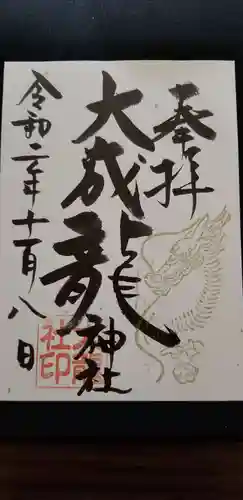 奉拝
大成龍神社
令和二年十一月八日